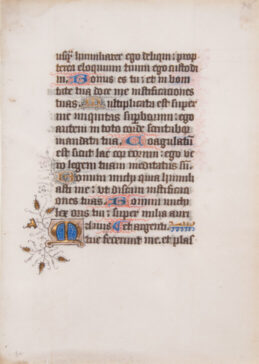 usq; humiliarer ego deliqui: prop
terea eloquium tuum ego custodi
ui. Bonus es tu: et in boni
tate tua doce me iustificaciones
tuas. Multiplicata est super
me iniquitas superborum: ego
autem in toto corde scrutabor
mandata tua. Coagulatum
est sicut lac cor eorum: ego ve
ro legem tuam meditatus sū.
Bonum michi quia humili
asti me: ut discam iustificaci
ones tuas. Bonum michi
lex oris tui: super milia auri
et argenti.
Manus
tue fecerunt me. et plas